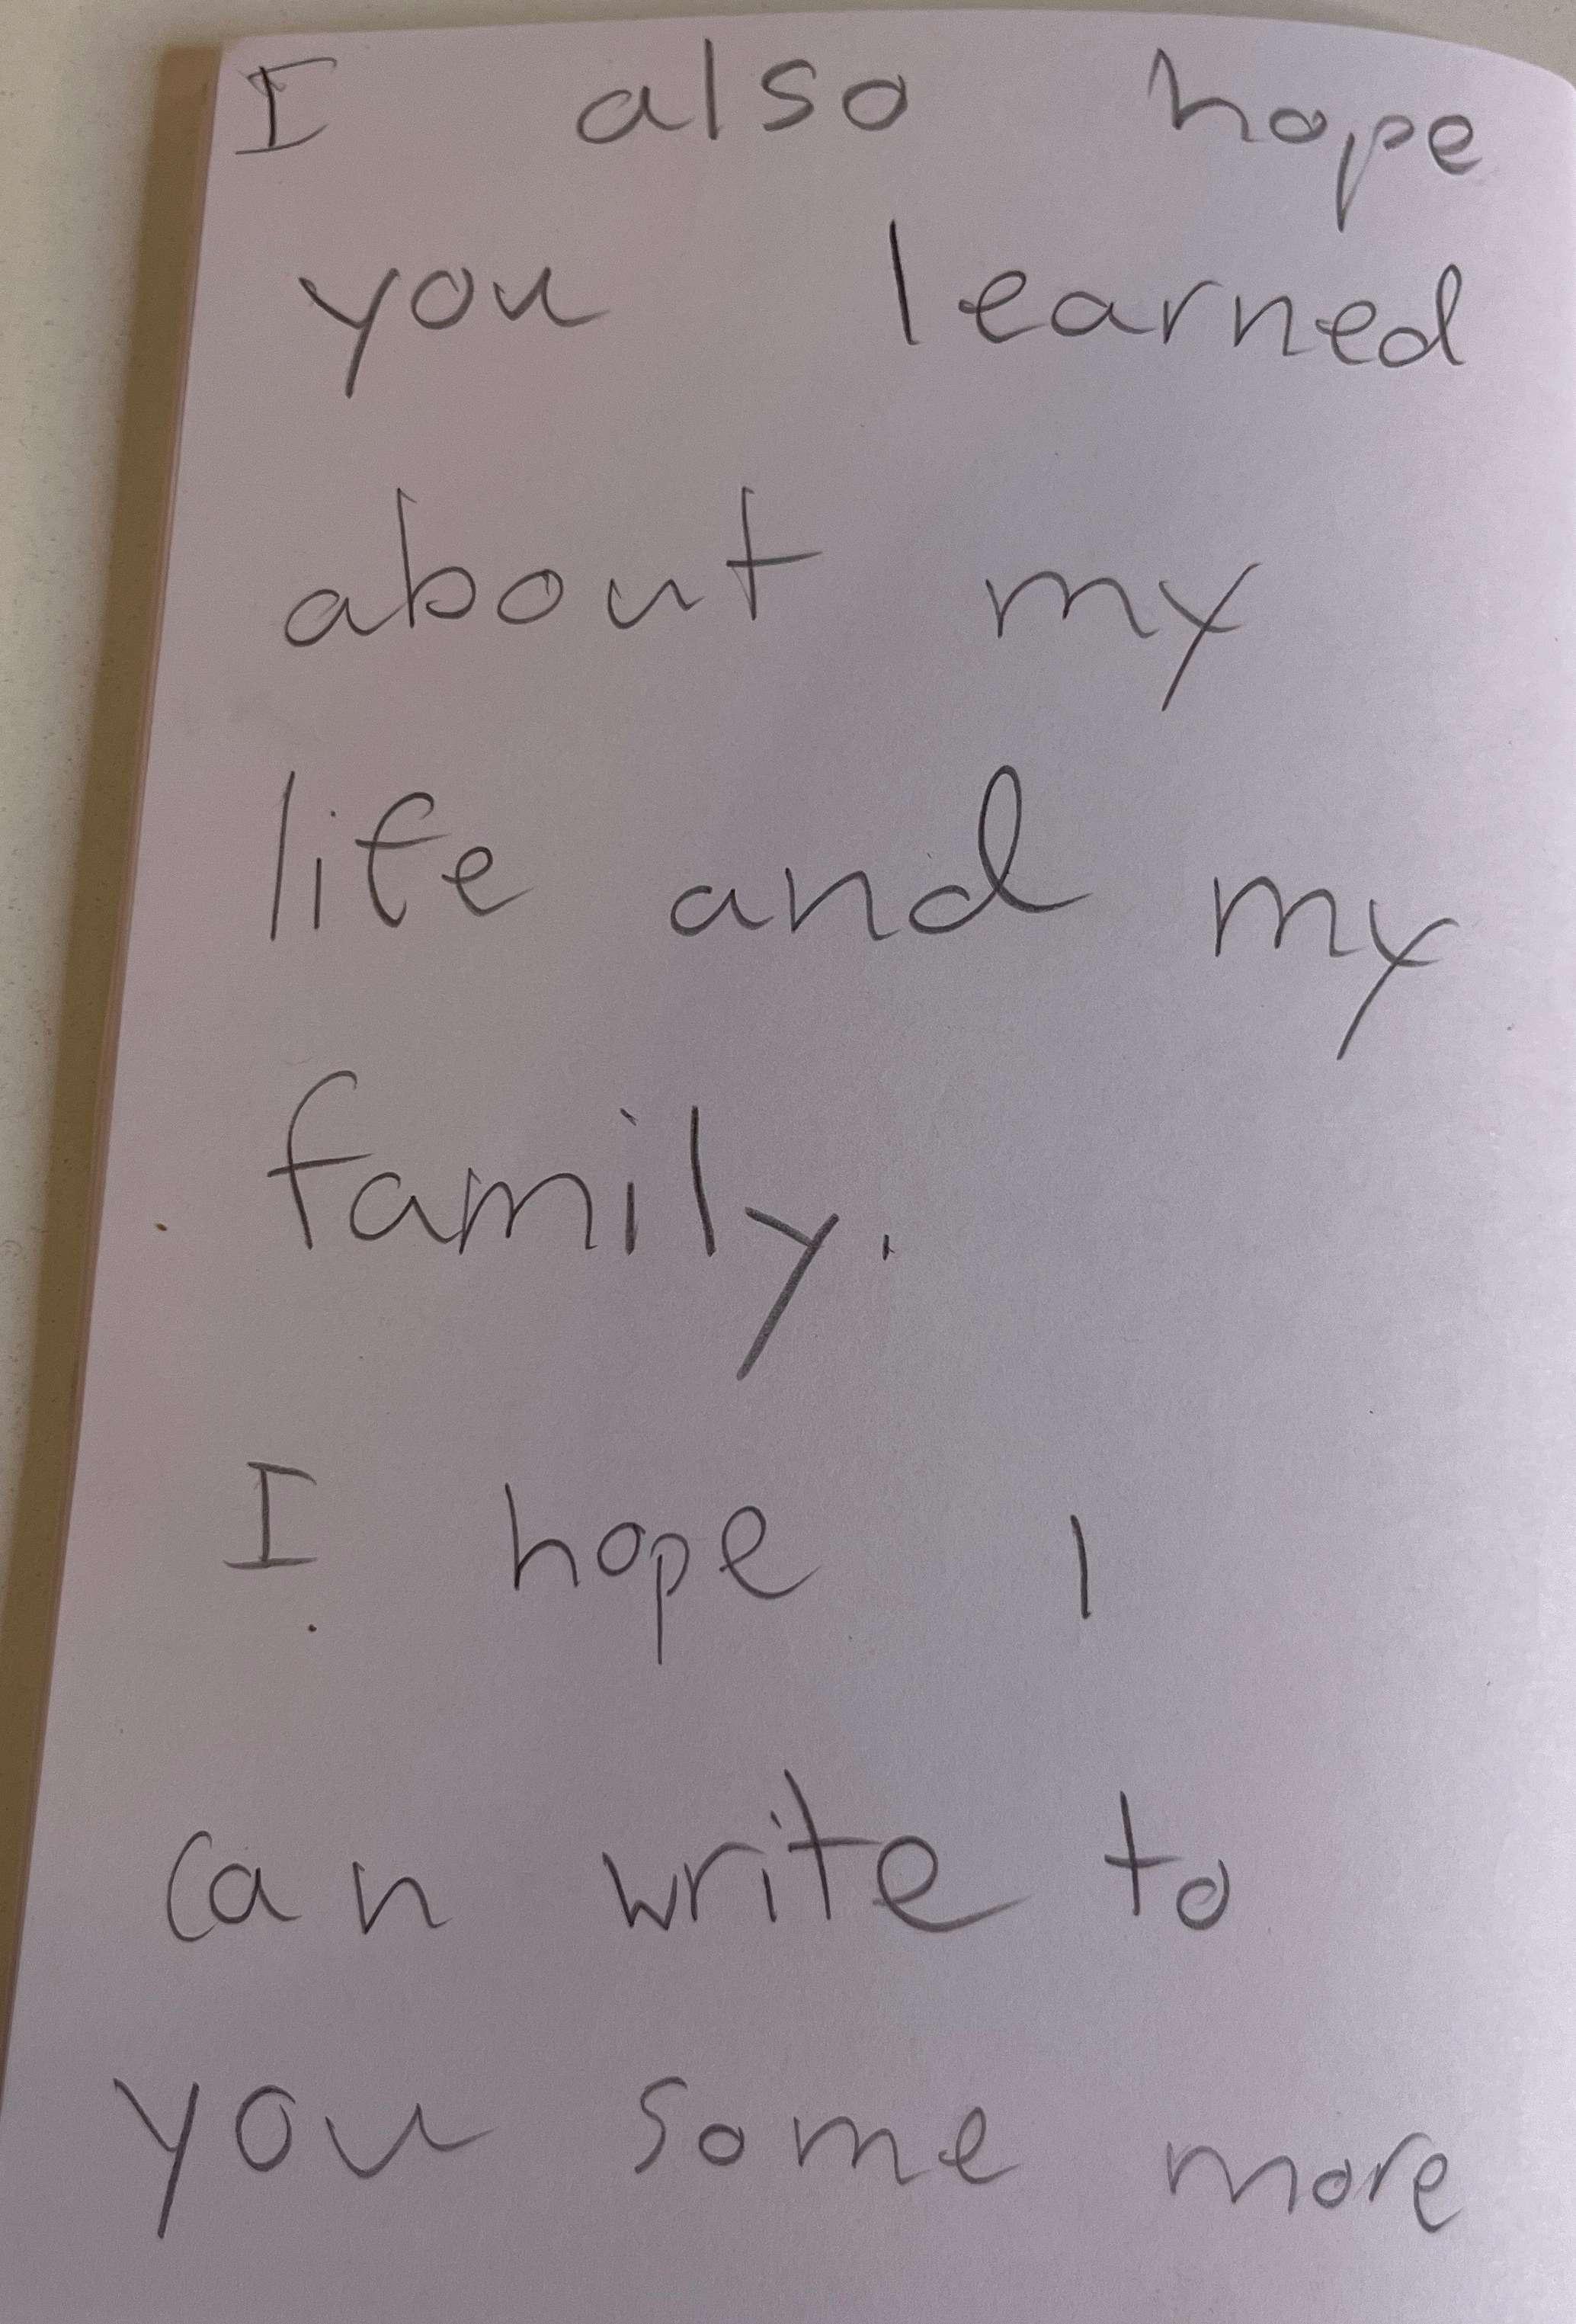 I also hope
you learned
about my
life and my
family.
I hope I
can write to
you some more